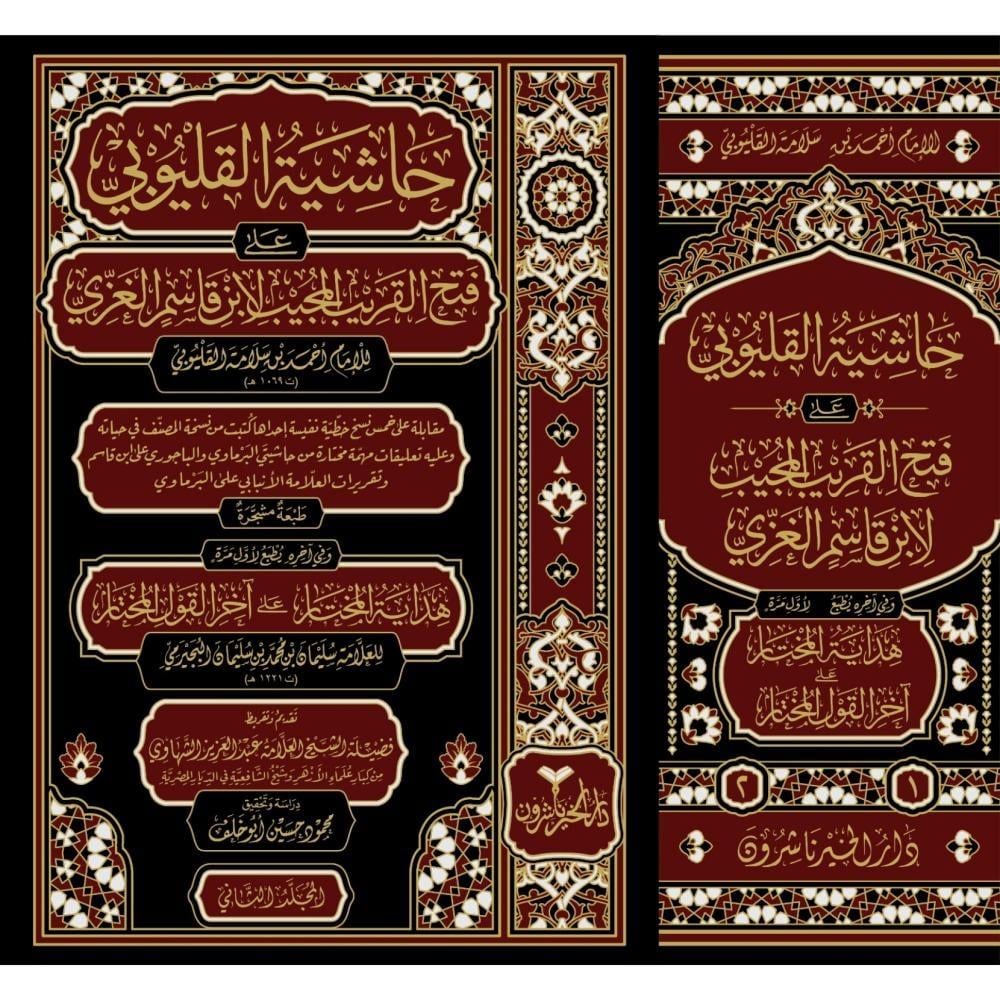 حاشية القليوبي
على
فتح القريب المجيب لابن قاسم الغزي
للإمام أحمد بن سلامة القليوبي
(ت ١٠٦٩ هـ)
مقابلة على خمس نسخ خطية نفيسة إحداها كتبت من نسخة المصنف في حياته
وعليه تعليقات مهمة مختارة من حاشيتي البرماوي والباجوري على ابن قاسم
وتقريرات العلامة الأنبابي على البرماوي
طبعة مشجرة
وفي آخره يطبع لأول مرة
هداية المختار على آخر القول المختار
للعلامة سليمان بن محمد بن سليمان البجيرمي
(ت ١٢٢١ هـ)
تقديم وتقريظ
فضيلة الشيخ العلامة عبد العزيز الشهاوي
من كبار علماء الأزهر وشيخ الشافعية في الديار المصرية
دراسة وتحقيق
محمود حسين أبو خلف
المجلد الثاني
دار الخير ناشرون
الإمام أحمد بن سلامة القليوبي
حاشية القليوبي
على
فتح القريب المجيب
لابن قاسم الغزي
وفي آخره يطبع لأول مرة
هداية المختار
على
آخر القول المختار
١
٢
دار الخير ناشرون